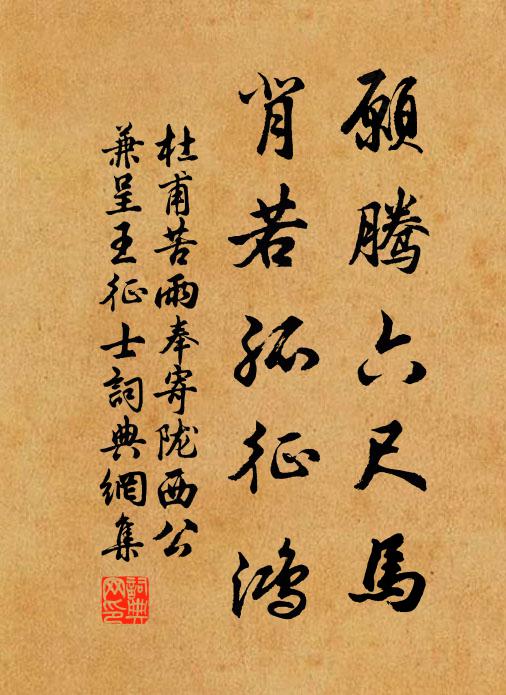 願騰六尺馬
背若孤征鴻
杜甫苦雨奉寄陇西公
兼呈王征士詞典網集
詞典網印